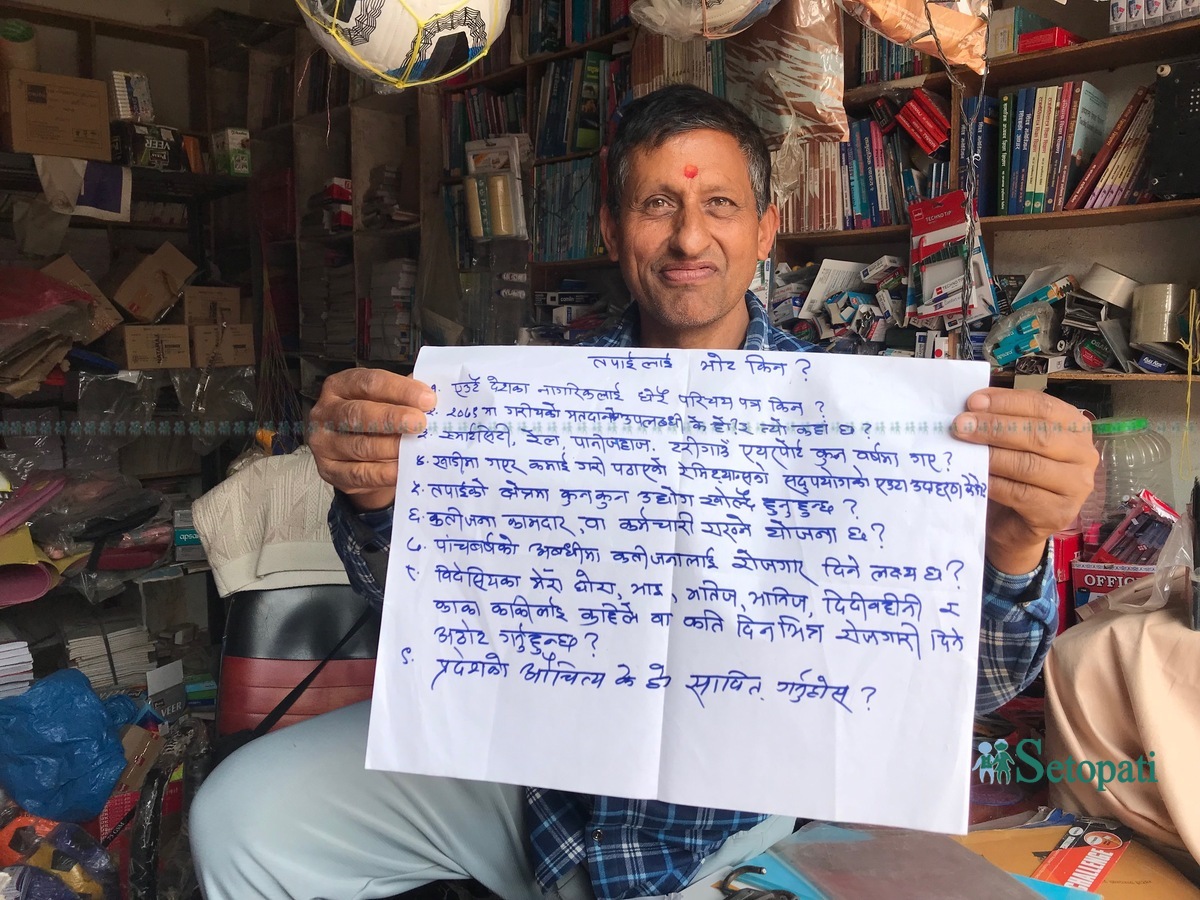 तपाईलाई भोट किन ?
१. एउटै देशका नागरिकलाई छोट्टै परिचय पत्र किन ?
२. २०७९ मा गरीयको मतदानको उपलब्धी के हो? र त्यो कहां छ ?
३. स्मार्टसिटी, रेल, पानीजहाज, टरीगाउँ एयरपोर्ट कुन वर्षमा गए ?
४. खाडीमा गएर कमाई गरी पठाएको रेमिट्यान्सको सदुपयोगको एउटा उदाहरण
५. तपाईको क्षेत्रमा कुनकुन उद्योग खोल्दै हुनुहुन्छ ?
६. कतीजना कामदार, वा कर्मचारी राख्ने योजना छ ?
७. पांचबर्षको अबधीमा कतीजनालाई रोजगार दिने लक्ष्य छ ?
८. विदेसियका मेरा छोरा, भाइ, भतिज, भानिज, दिदीवहीनी र
काका काकीलाई कहिले वा कति दिन भित्र रोजगारी दिने
अठोट गर्नुहुन्छ ?
९. प्रदेशको औचित्य के हो सावित गर्नुहोस ?
Setopati
TECHNOTIP
VEER
OFFIC
CHALLENGE